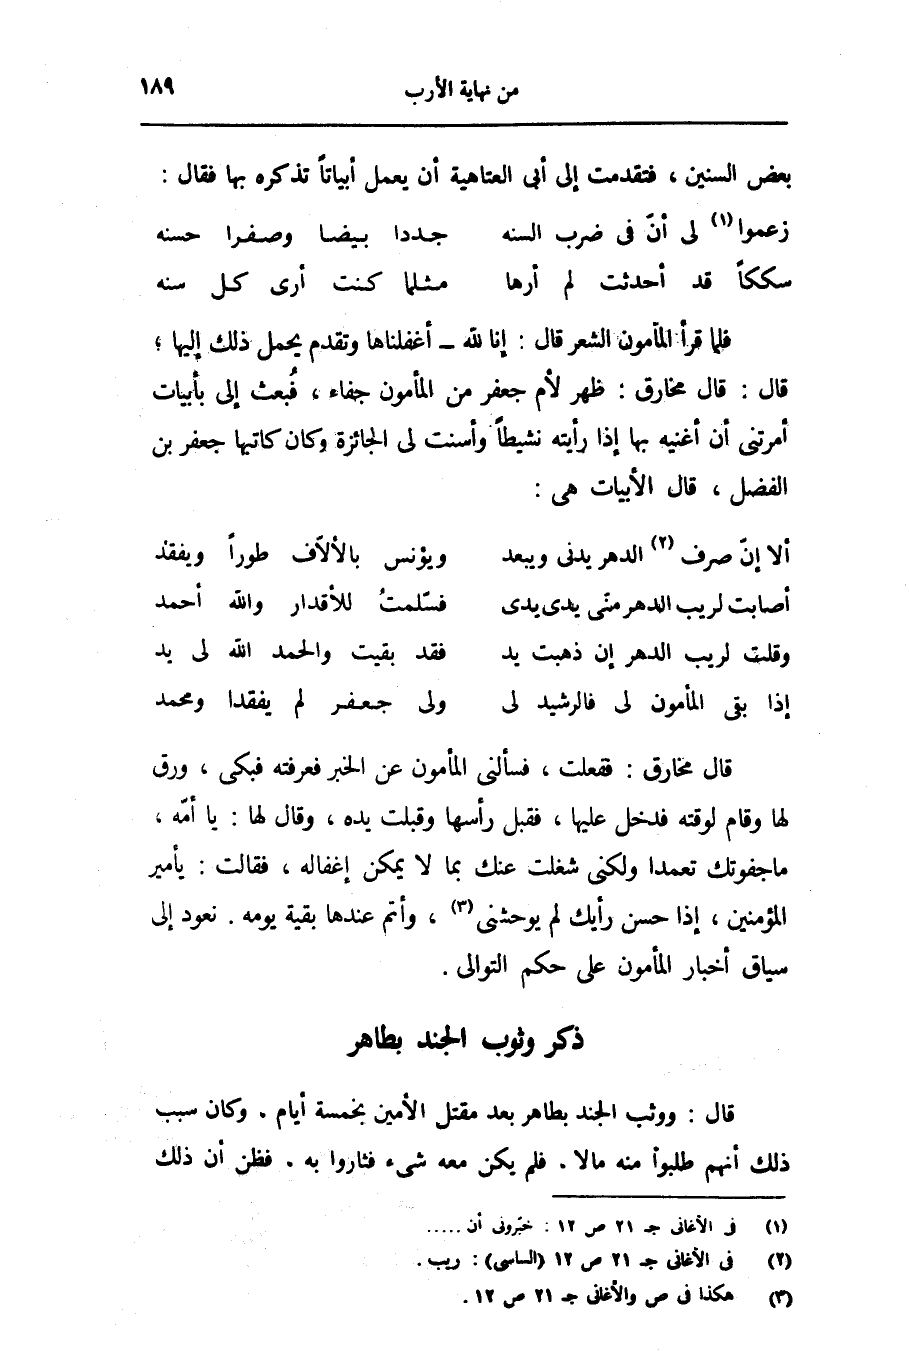 من نهاية الأرب ١٨٩
بعض السنين ، فتقدمت إلى أبى العتاهية أن يعمل أبياتاً تذكره بها فقال :
زعموا(١) لى أنّ فى ضرب السنه جددا بيضا وصفرا حسنه
سككاً قد أحدثت لم أرها مثلما كنت أرى كل سنه
فلما قرأ المأمون الشعر قال : إنا لله ــ أغفلناها وتقدم يحمل ذلك إليها ؛
قال : قال مخارق : ظهر لأم جعفر من المأمون جفاء ، فُبعث إلى بأبيات
أمرتنى أن أغنيه بها إذا رأيته نشيطاً وأسنت لى الجائزة وكان كاتبها جعفر بن
الفضل ، قال الأبيات هى :
ألا إنّ صرف (٢) الدهر يدنى ويبعد ويؤنس بالألآف طوراً ويفقد
أصابت لريب الدهر منّى يدى يدى فسّلمتُ للأقدار والله أحمد
وقلت لريب الدهر إن ذهبت يد فقد بقيت والحمد الله لى يد
إذا بقى المأمون لى فالرشيد لى ولى جعفر لم يفقدا ومحمد
قال مخارق : ففعلت ، فسألنى المأمون عن الخبر فعرفته فبكى ، ورق
لها وقام لوقته فدخل عليها ، فقبل رأسها وقبلت يده ، وقال لها : يا أمّه ،
ماجفوتك تعمدا ولكنى شغلت عنك بما لا يمكن إغفاله ، فقالت : يأمير
المؤمنين ، إذا حسن رأيك لم يوحشنى(٣) ، وأتم عندها بقية يومه . نعود إلى
سياق أخبار المأمون على حكم التوالى .
ذكر وثوب الجند بطاهر
قال : ووثب الجند بطاهر بعد مقتل الأمين بخمسة أيام . وكان سبب
ذلك أنهم طلبوا منه مالا . فلم يكن معه شىء فثاروا به . فظن أن ذلك
(١) فى الأغانى جـ ٢١ ص ١٢ : خبّرونى أن .....
(٢) فى الأغانى جـ ٢١ ص ١٢ (الساسى) : ريب .
(٣) هكذا فى ص والأغانى جـ ٢١ ص ١٢ .